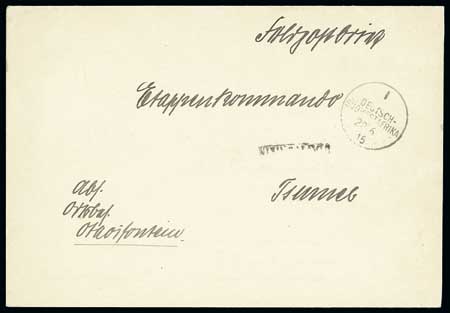 Feldpostbrief
Etappenkommando
I
DEUTSCH-
SÜDWESTAFRIKA
15
Tsumeb
Abs.
Ortsbef.
Otavifontein